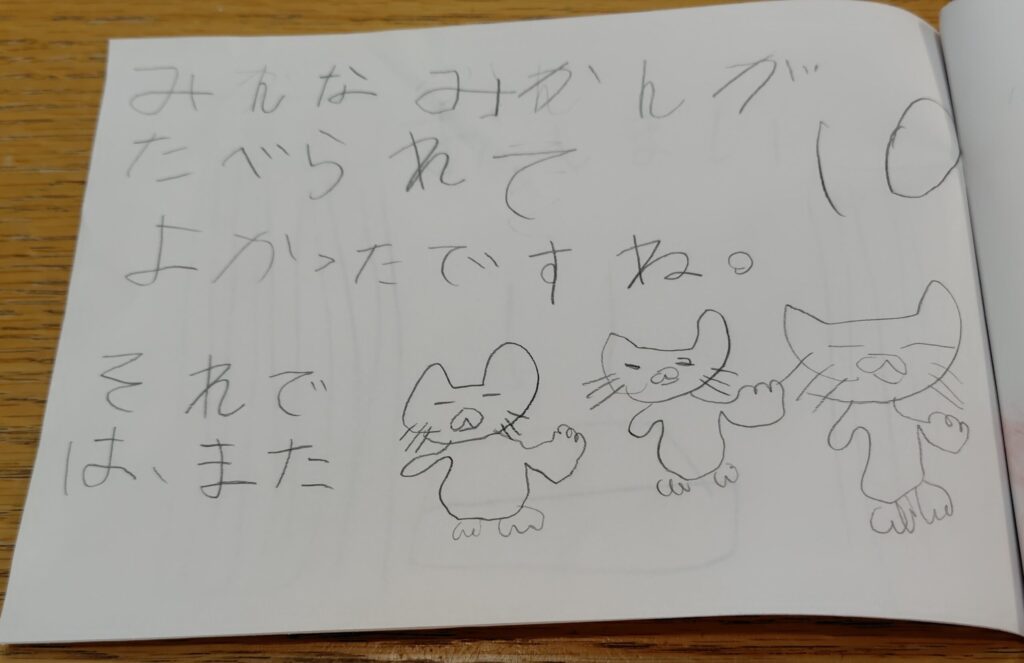 みんなみかんが
たべられて
よかったですね。
それで
は、また
10